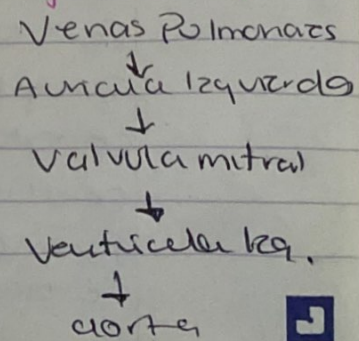 Venas Pulmonares
Auricula Izquierda
Valvula mitral
Ventricular Izq.
aorta